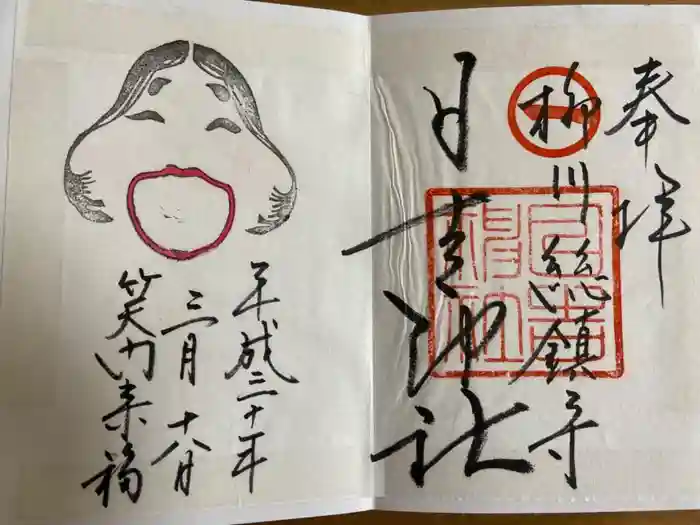 奉拝
柳川総鎮守
日吉神社
平成三十年
三月十八日
笑門来福